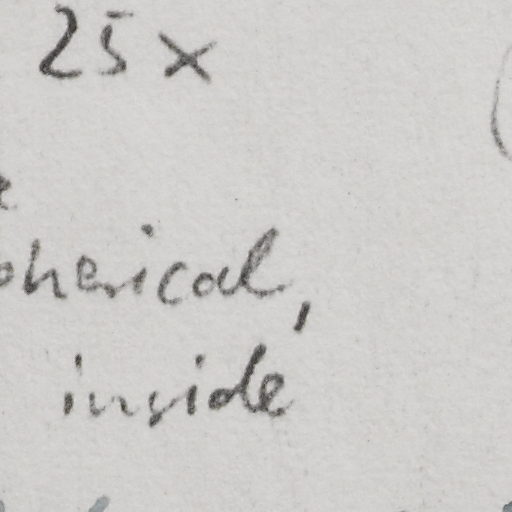 25 x
pherical,
inside